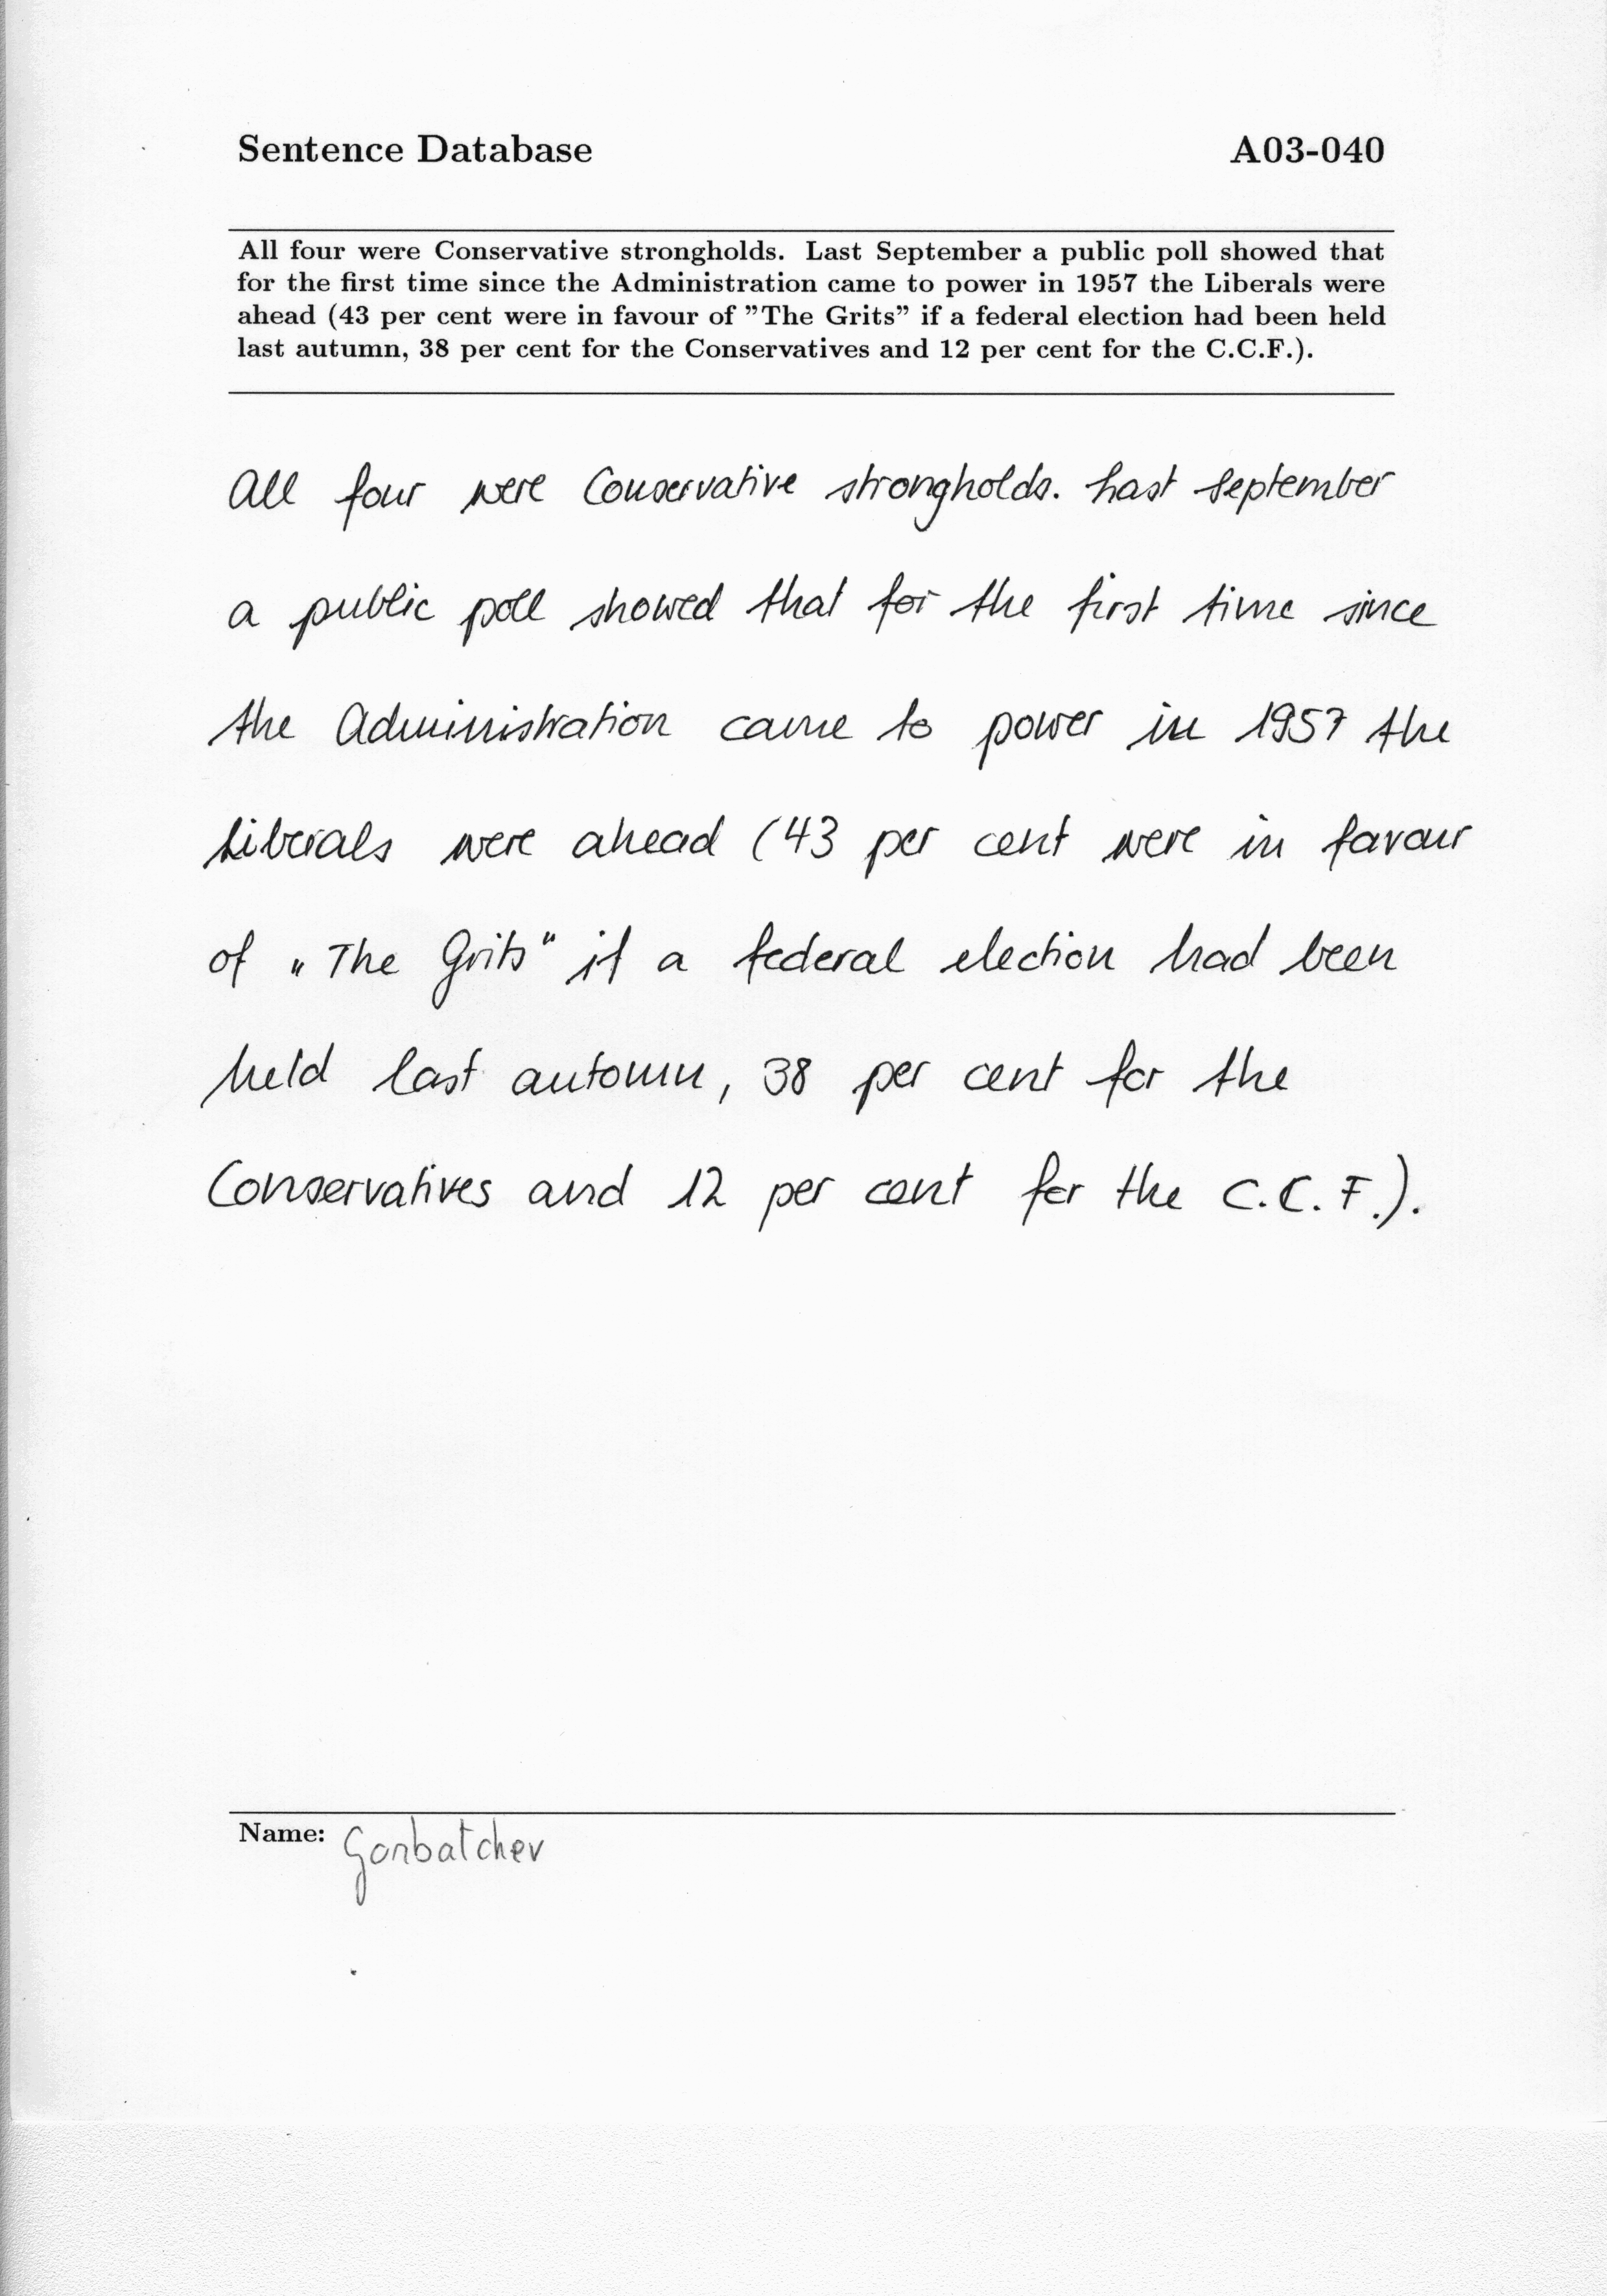 Sentence Database A03-040
All four were Conservative strongholds. Last September a public poll showed that
for the first time since the Administration came to power in 1957 the Liberals were
ahead (43 per cent were in favour of ”The Grits” if a federal election had been held
last autumn, 38 per cent for the Conservatives and 12 per cent for the C.C.F.).
All four were Conservative strongholds. Last September
a public poll showed that for the first time since
the Administration came to power in 1957 the
Liberals were ahead (43 per cent were in favour
of „The Grits“ if a federal election had been
held last autumn, 38 per cent for the
Conservatives and 12 per cent for the C.C.F.).
Name: Gorbatchev